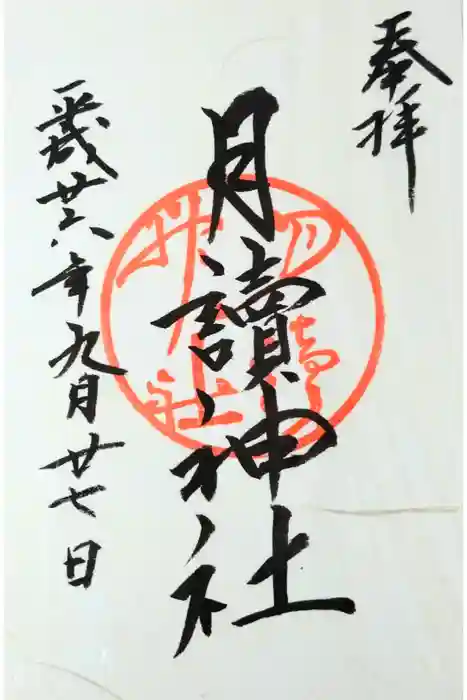 奉拝
月讀神社
平成廿六年九月廿七日